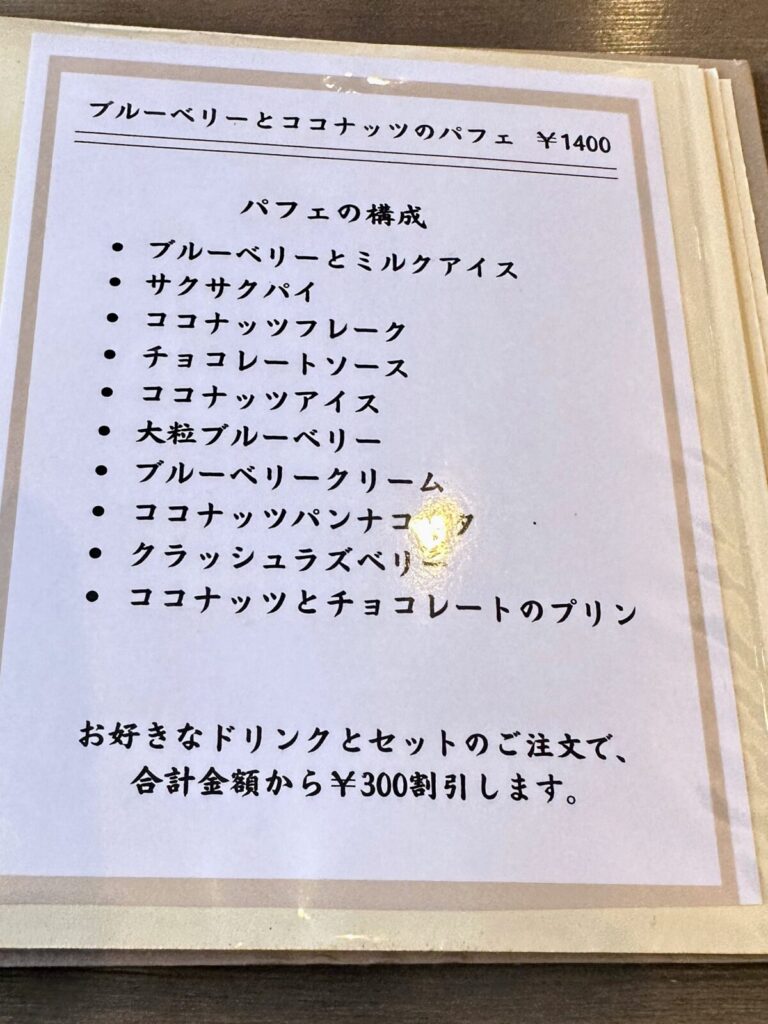 ブルーベリーとココナッツのパフェ ￥1400
パフェの構成
• ブルーベリーとミルクアイス
• サクサクパイ
• ココナッツフレーク
• チョコレートソース
• ココナッツアイス
• 大粒ブルーベリー
• ブルーベリークリーム
• ココナッツパンナコッタ
• クラッシュラズベリー
• ココナッツとチョコレートのプリン
お好きなドリンクとセットのご注文で、
合計金額から￥300割引します。